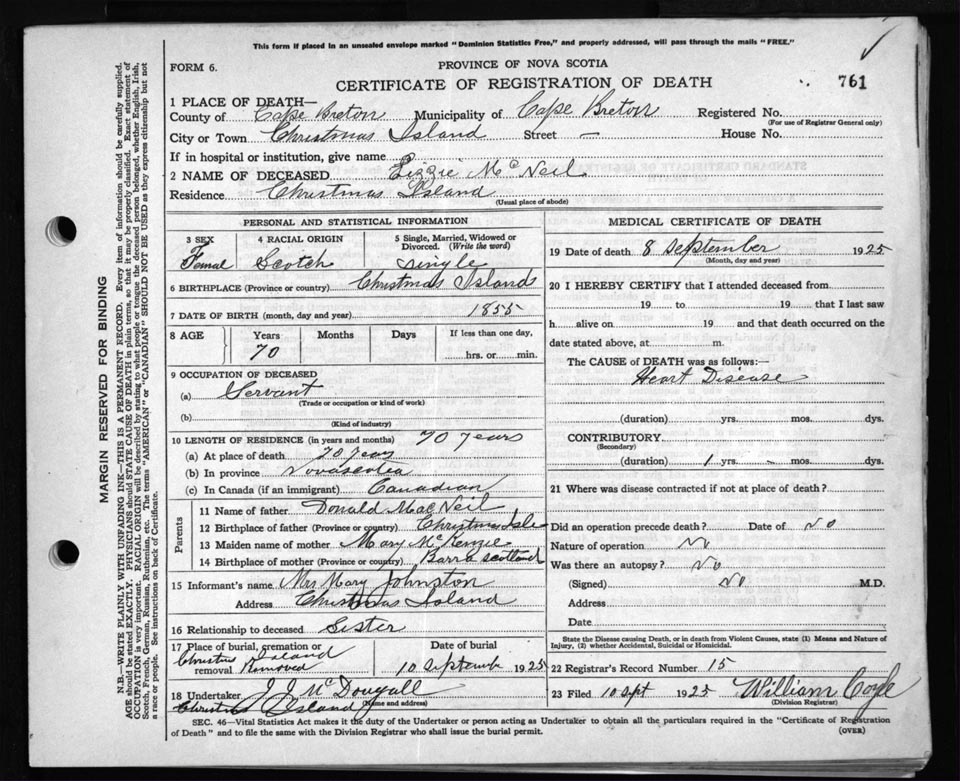 This form if placed in an unsealed envelope marked "Dominion Statistics Free," and properly addressed, will pass through the mails "FREE."
FORM 6.
PROVINCE OF NOVA SCOTIA
CERTIFICATE OF REGISTRATION OF DEATH
761
1 PLACE OF DEATH—
County of Cape Breton Municipality of Cape Breton Registered No.
(For use of Registrar General only)
City or Town Christmas Island Street — House No.
If in hospital or institution, give name
2 NAME OF DECEASED Lizzie McNeil
Residence Christmas Island
(Usual place of abode)
PERSONAL AND STATISTICAL INFORMATION
3 SEX 4 RACIAL ORIGIN 5 Single, Married, Widowed or Divorced. (Write the word)
Femal Scotch single
6 BIRTHPLACE (Province or country) Christmas Islands
7 DATE OF BIRTH (month, day and year) 1855
8 AGE Years Months Days If less than one day,
70 hrs. or min.
9 OCCUPATION OF DECEASED
(a) Servant
(Trade or occupation or kind of work)
(b)
(Kind of industry)
10 LENGTH OF RESIDENCE (in years and months) 70 years
(a) At place of death 70 years
(b) In province Novascotea
(c) In Canada (if an immigrant) Canadian
Parents
11 Name of father Donald MacNeil
12 Birthplace of father (Province or country) Christmas Isle
13 Maiden name of mother Mary McKenzie
14 Birthplace of mother (Province or country) Barra Scotland
15 Informant's name Mrs Mary Johnston
Address Christmas Island
16 Relationship to deceased Sister
17 Place of burial, cremation or removal Date of burial
Christms Island
Removed 10 Septemb 1925
18 Undertaker J J McDougall
Christms Island (Name and address)
MEDICAL CERTIFICATE OF DEATH
19 Date of death 8 September 1925
(Month, day and year)
20 I HEREBY CERTIFY that I attended deceased from
19 to 19 that I last saw
h alive on 19 and that death occurred on the
date stated above, at m.
The CAUSE of DEATH was as follows:—
Heart Disease
(duration) yrs. mos. dys.
CONTRIBUTORY
(Secondary)
(duration) 1 yrs. - mos. dys.
21 Where was disease contracted if not at place of death?
Did an operation precede death? Date of No
Nature of operation No
Was there an autopsy? No
(Signed) No M.D.
Address
Date
State the Disease causing Death, or in death from Violent Causes, state (1) Means and Nature of
Injury, (2) whether Accidental, Suicidal or Homicidal.
22 Registrar's Record Number 15
23 Filed 10 Sept 1925 William Coyle
(Division Registrar)
SEC. 46—Vital Statistics Act makes it the duty of the Undertaker or person acting as Undertaker to obtain all the particulars required in the "Certificate of Registration
of Death" and to file the same with the Division Registrar who shall issue the burial permit.
(OVER)
MARGIN RESERVED FOR BINDING
N.B.—WRITE PLAINLY WITH UNFADING INK—THIS IS A PERMANENT RECORD. Every item of information should be carefully supplied.
AGE should be stated EXACTLY. PHYSICIANS should STATE CAUSE OF DEATH in plain terms, so that it may be properly classified. Exact statement of
OCCUPATION is very important. RACIAL ORIGIN will be described by stating to what people or tongue the deceased person belonged, whether English, Irish,
Scotch, French, German, Russian, Ruthenian, etc. The terms "AMERICAN" or "CANADIAN" SHOULD NOT BE USED as they express citizenship but not
a race or people. See instructions on back of Certificate.